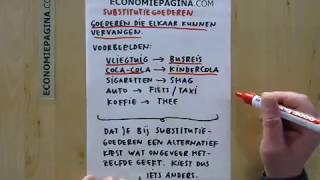 ECONOMIEPAGINA.COM
SUBSTITUTIEGOEDEREN
GOEDEREN DIE ELKAAR KUNNEN
VERVANGEN.
VOORBEELDEN:
VLIEGTUIG → BUSREIS
COCA-COLA → KINDERCOLA
SIGARETTEN → SHAG
AUTO → FIETS/TAXI
KOFFIE → THEE
DAT JE BIJ SUBSTITUTIE-
GOEDEREN EEN ALTERNATIEF
KIEST WAT ONGEVEER HET-
ZELFDE GEEFT. KIEST DUS
IETS ANDERS.